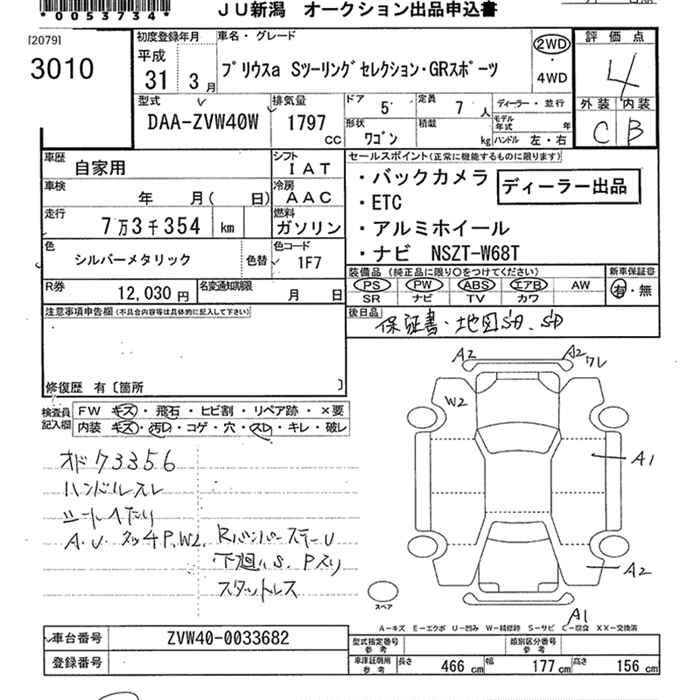 *0053734*
JU新潟 オークション出品申込書
[2079]
3010
初度登録年月
平成
31 3月
車名・グレード
プリウスα Sツーリングセレクション・GRスポーツ
2WD
・
4WD
評価点
4
外装 内装
C B
型式
DAA-ZVW40W
排気量
1797
CC
ドア
5
定員
7人
形状
ワゴン
積載
kg
ディーラー・並行
モデル年式 年
ハンドル 左・右
車歴
自家用
シフト
IAT
車検
年 月( 日)
冷房
AAC
走行
7万3千354 km
燃料
ガソリン
色
シルバーメタリック
色替
色コード
1F7
R券
12,030円
名変通知期限
月 日
セールスポイント(正常に機能するものに限ります)
・バックカメラ
ディーラー出品
・ETC
・アルミホイール
・ナビ NSZT-W68T
装備品 (純正品に限り○をつけてください)
PS PW ABS エアB AW
SR ナビ TV カワ
新車保証書
有・無
後日品
保証書・地図SD、SD
注意事項申告欄(不具合内容等は具体的に記入して下さい)
修復歴 有〔箇所 〕
検査員記入欄
FW キズ・飛石・ヒビ割・リペア跡・×要
内装 キズ・汚レ・コゲ・穴・スレ・キレ・破レ
オドク73356
ハンドルスレ
シートヘタリ
A.U. タッチP、W2、Rバンパーステー U
下廻りS、Pスリ
スタットレス
A2 A2 ワレ
W2
A1
A2
A1
スペア
A-キズ E-エクボ U-凹み W-補修跡 S-サビ C-腐食 XX-交換済
車台番号
ZVW40-0033682
登録番号
型式指定番号 参考
類別区分番号 参考
車庫証明用 参考
長さ 466 cm 幅 177 cm 高さ 156 cm